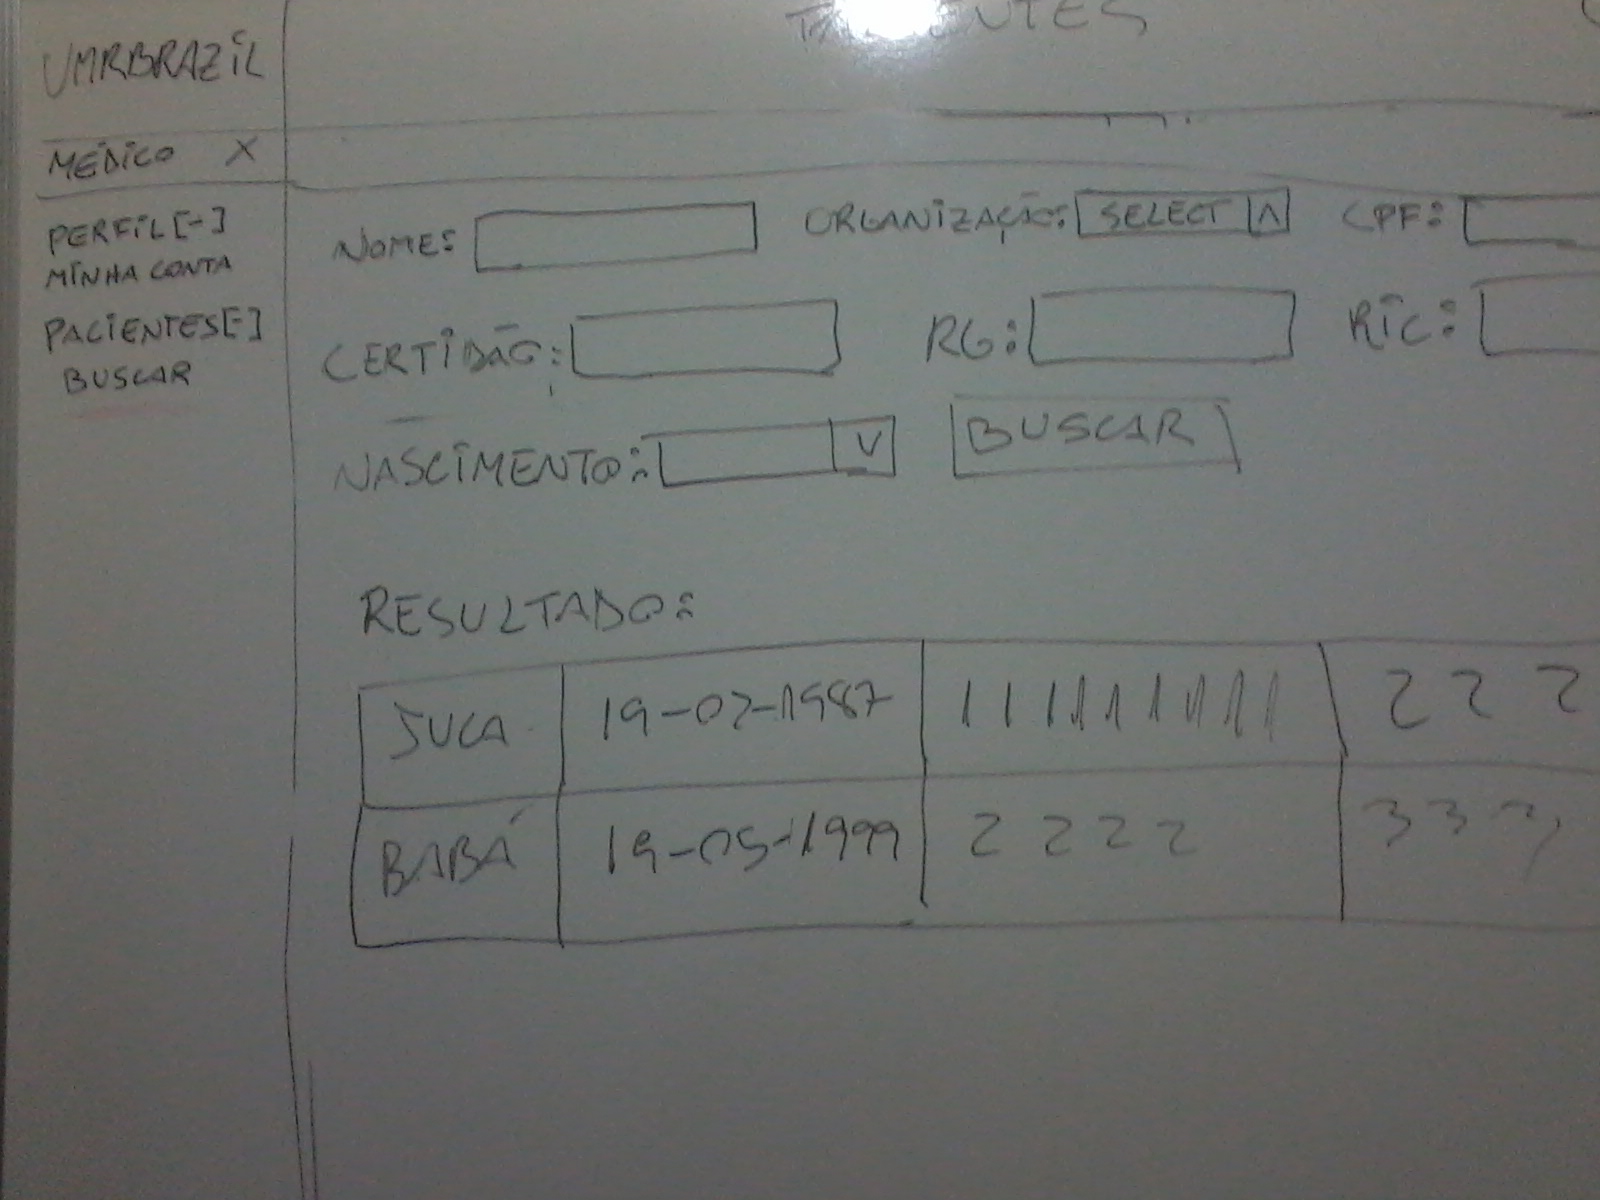 UMRBRAZIL
MÉDICO X
PERFIL[-]
MINHA CONTA
PACIENTES[-]
BUSCAR
NOME:
ORGANIZAÇÃO: SELECT
CPF:
CERTIDÃO:
RG:
RIC:
NASCIMENTO: V
BUSCAR
RESULTADO:
JUCA 19-02-1987 111111111 222
BABÁ 19-05-1999 2222 33